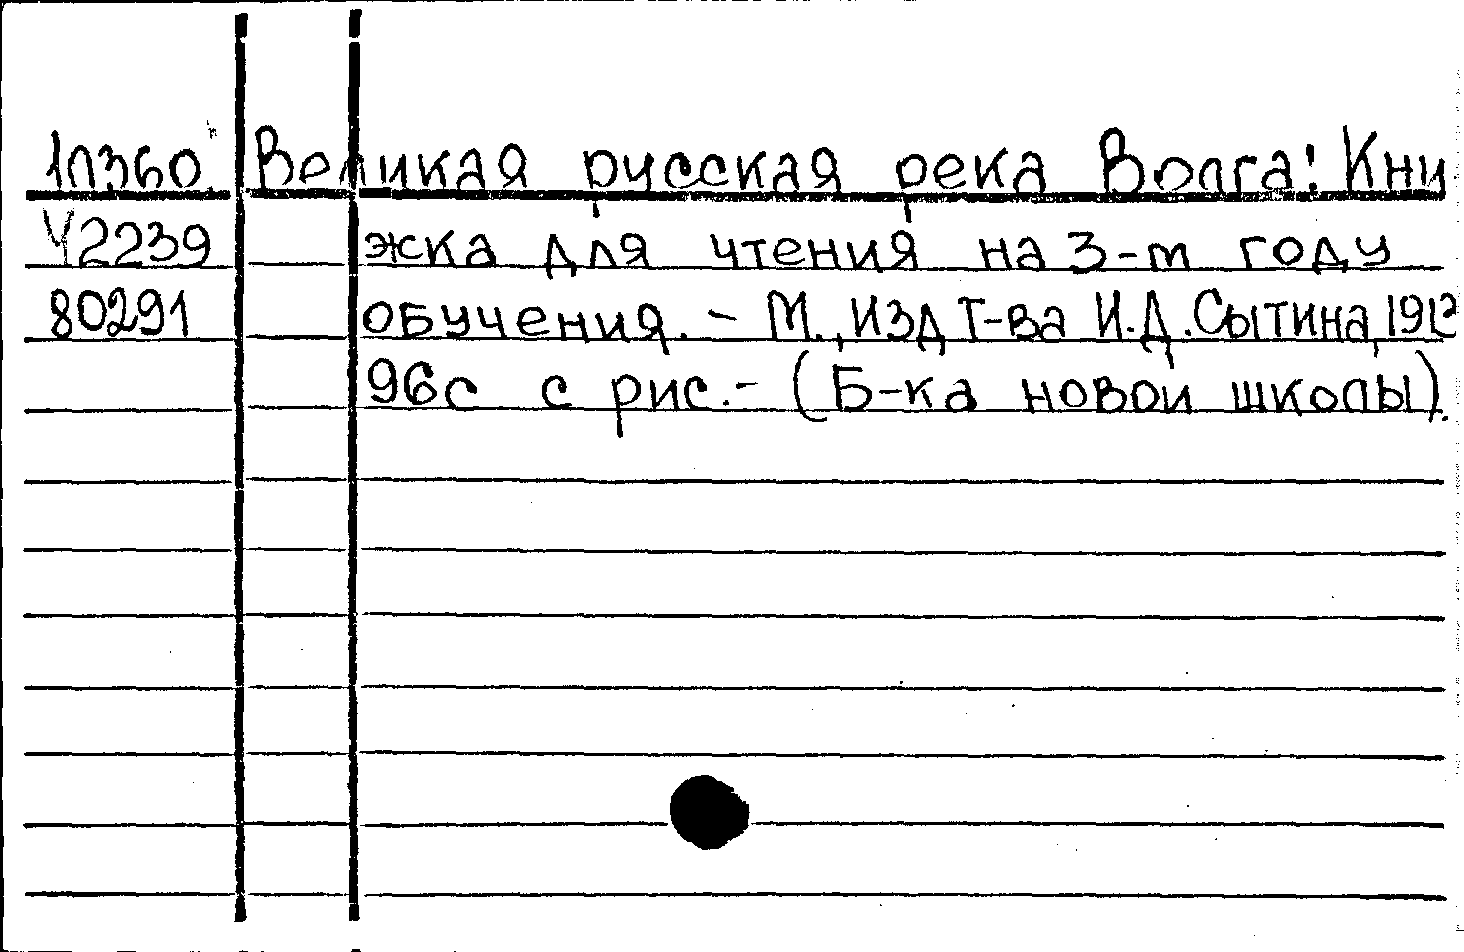 1П360 Великая русская река Волга! Кни
Ч2239 жка для чтения на 3-м году
80291 обучения. - М., Изд Т-ва И.Д. Сытина, 1912
96с с рис. - (Б-ка новой школы).